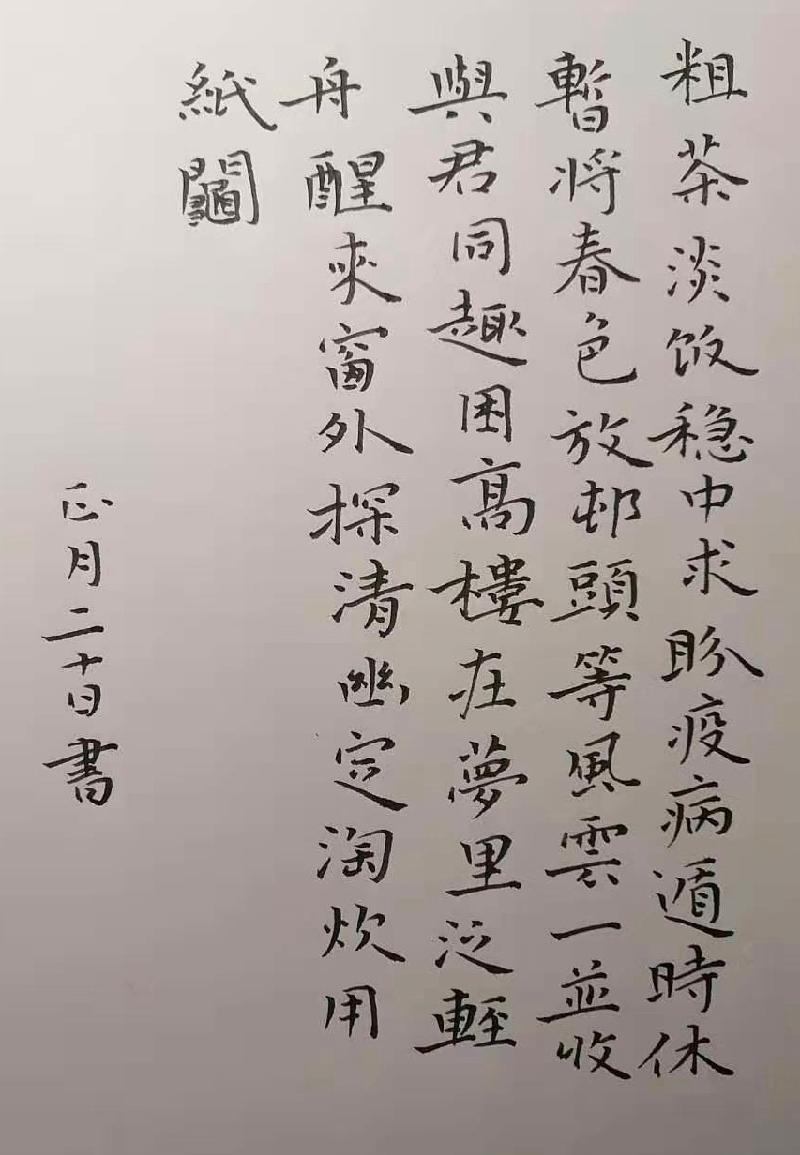 粗茶淡饭稳中求盼疫病遁時休
暫将春色放邨頭等風雲一並收
與君同趣困高樓在夢里泛輕
舟醒來窗外探清幽定淘炊用
紙鬮
正月二十日書